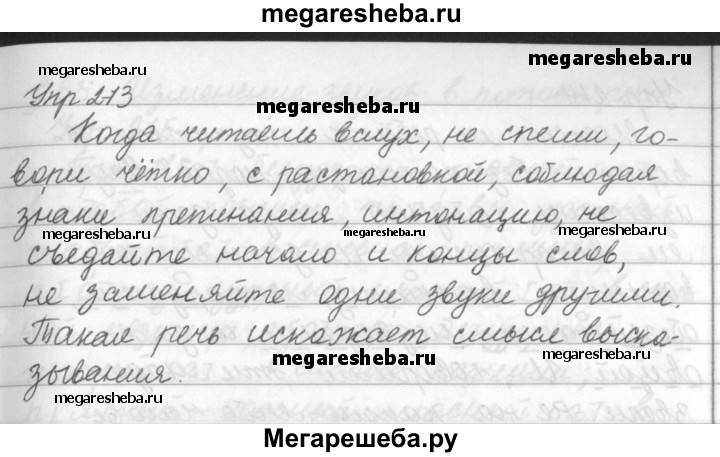 megaresheba.ru
megaresheba.ru
megaresheba.ru
Упр 213
megaresheba.ru
Когда читаешь вслух, не спеши, го-
вори чётко, с растановкой, соблюдая
знаки препинания, интонацию, не
megaresheba.ru
megaresheba.ru
megaresheba.ru
съедайте начало и концы слов,
не заменяйте одни звуки другими.
Такая речь искажает смысл выска-
megaresheba.ru
megaresheba.ru
зывания.
megaresheba.ru
Мегарешеба.ру